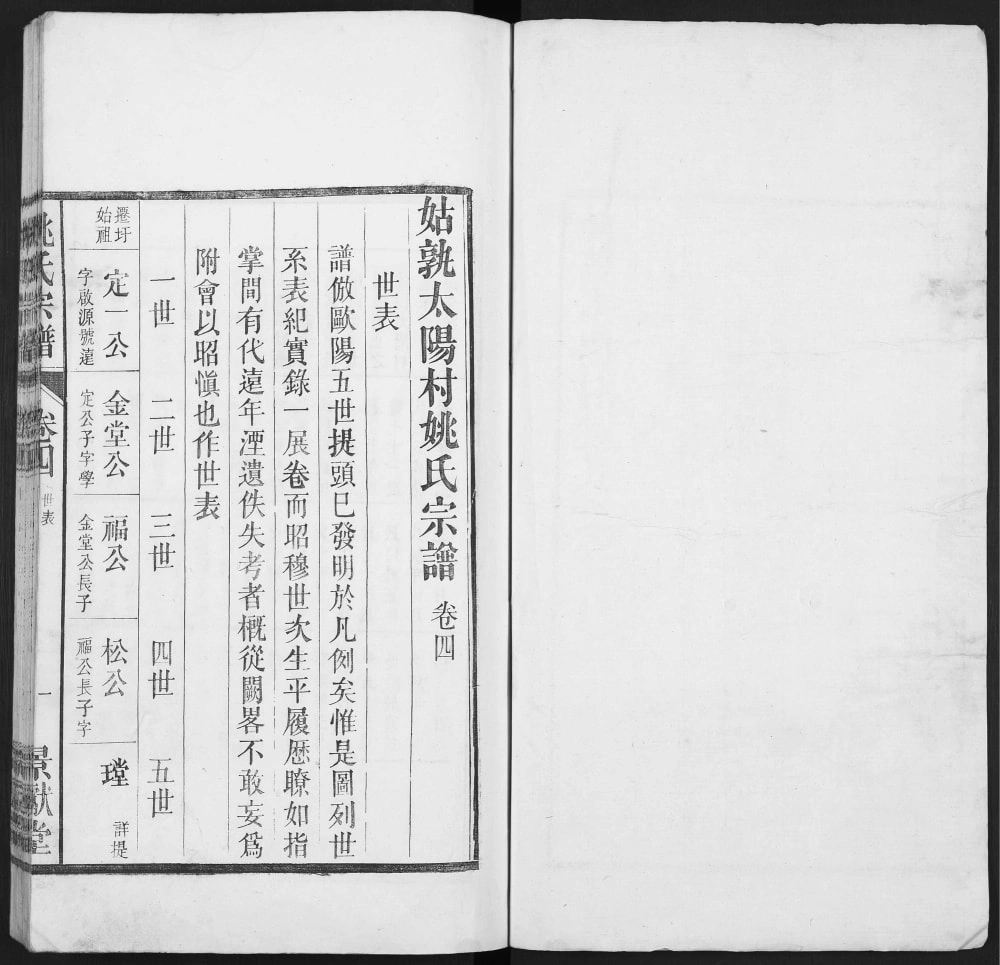 姑孰太陽村姚氏宗譜 卷四
世表
譜倣歐陽五世提頭已發明於凡例矣惟是圖列世
系表紀實錄一展卷而昭穆世次生平履歷瞭如指
掌間有代遠年湮遺佚失考者槪從闕畧不敢妄爲
附會以昭愼也作世表
一世 二世 三世 四世 五世
遷圩
始祖
定一公 金堂公 福公 松公 瑝 詳提
字啟源號遠 定公子字學 金堂公長子 福公長子字
姚氏宗譜 卷四 世表 一 景猷堂